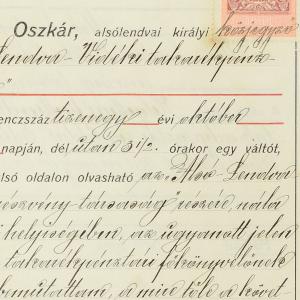 Oszkár, alsólendvai királyi közjegyző
Lendva-Vidéki takarékpénz
"
enczszáz tizenegy évi október
napján, dél után 3½. órakor egy váltót,
lső oldalon olvasható az „Alsó-Lendva
részvény-társaság" részére, nála
i helyiségiben, az ugyanott jelen
takarékpénztári főkönyvelőnek
bemutattam, a mire tőle a követ